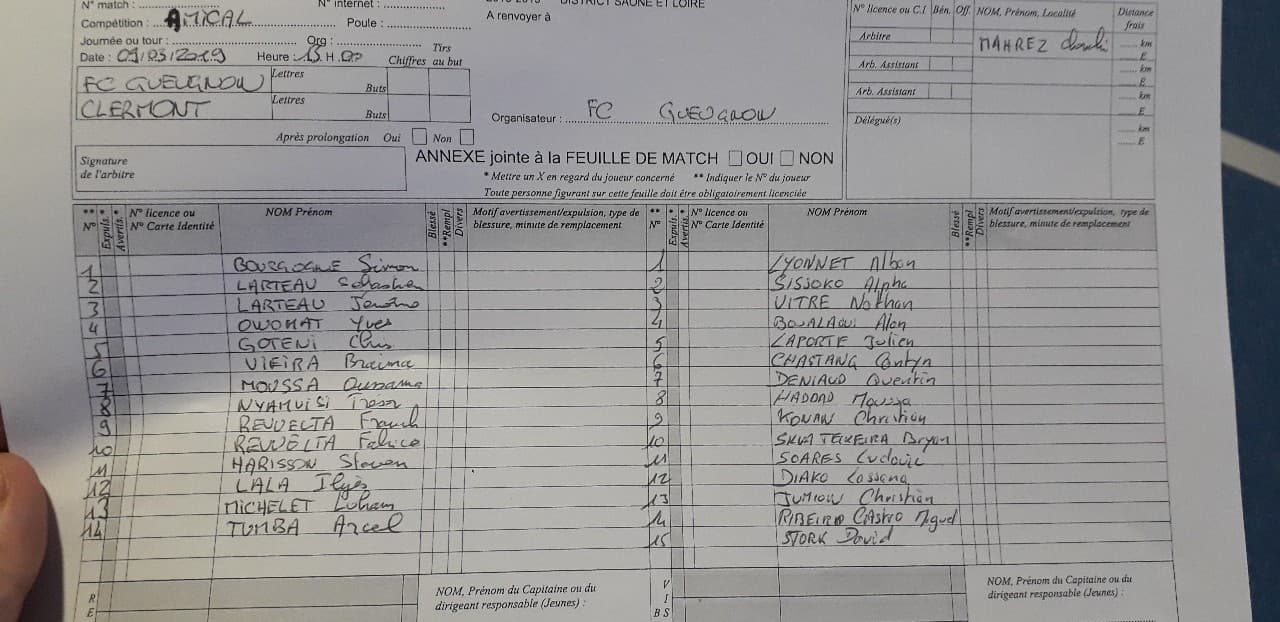 N° match :
N° internet :
Compétition : AMICAL
Poule :
A renvoyer à
DISTRICT SAONE ET LOIRE
Journée ou tour :
Org :
Date : 01/03/2019 Heure : 15 H 00
Tirs
Chiffres au but
FC GUEUGNON
Lettres
Buts
CLERMONT
Lettres
Buts
Organisateur : FC GUEUGNON
Après prolongation Oui Non
Signature
de l'arbitre
ANNEXE jointe à la FEUILLE DE MATCH OUI NON
* Mettre un X en regard du joueur concerné ** Indiquer le N° du joueur
Toute personne figurant sur cette feuille doit être obligatoirement licenciée
N° licence ou C.I Bén. Off. NOM, Prénom, Localité Distance
frais
Arbitre MAHREZ km
E
Arb. Assistant km
E
Arb. Assistant km
E
Délégué(s) km
E
** N° Expuls. * Avertis. * N° licence ou N° Carte Identité NOM Prénom Blessé **Rempl Divers Motif avertissement/expulsion, type de blessure, minute de remplacement
1 BOURGOGNE Simon
2 LARTEAU Sébastien
3 LARTEAU Jérôme
4 OWONAT Yves
5 GOTENI Chris
6 VIEIRA Braima
7 MOUSSA Oussama
8 NYAMUISI Tresor
9 REVUELTA Franck
10 REVUELTA Fabrice
11 HARISSON Steven
12 LALA Ilyès
13 MICHELET Loham
14 TUMBA Arcel
** N° Expuls. * Avertis. * N° licence ou N° Carte Identité NOM Prénom Blessé **Rempl Divers Motif avertissement/expulsion, type de blessure, minute de remplacement
1 LYONNET Alban
2 SISSOKO Alpha
3 VITRE Nathan
4 BOUALAOUI Alan
5 LAPORTE Julien
6 CHASTANG Contyn
7 DENIAUD Quentin
8 HADDAD Moussa
9 KONAN Christian
10 SILVA TEIXEIRA Bryan
11 SOARES Ludovic
12 DIAKO Lossana
13 JUMION Christian
14 RIBEIRO CASTRO Miguel
15 STORK David
R
E
NOM, Prénom du Capitaine ou du
dirigeant responsable (Jeunes) :
V
I
B S
NOM, Prénom du Capitaine ou du
dirigeant responsable (Jeunes) :